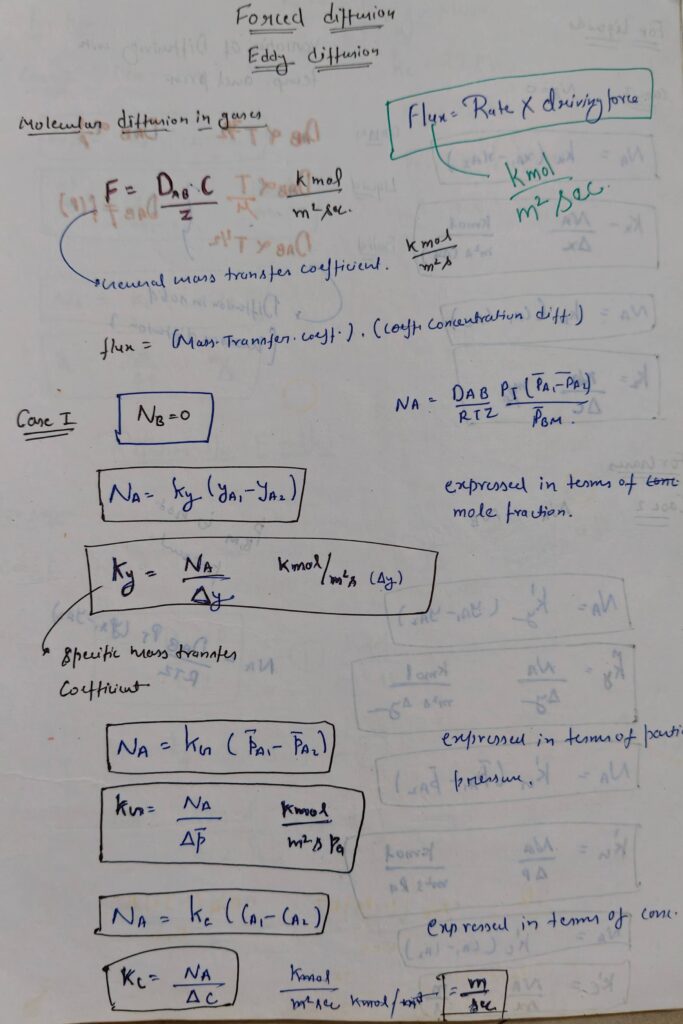 Forced diffusion
Eddy diffusion
Molecular diffusion in gases
Flux = Rate X driving force
Kmol / m² sec.
F = D_AB · C / Z    Kmol / m² sec.
General mass transfer coefficient. Kmol / m² s
flux = (Mass. Transfer. coeff.) . (Concentration diff.)
Case I   N_B = 0   N_A = D_AB P_T (P̄_A1 - P̄_A2) / RTZ P̄_BM.
N_A = k_y (y_A1 - y_A2)   expressed in terms of
mole fraction.
k_y = N_A / Δy    Kmol / m² s (Δy)
Specific mass transfer
Coefficient
N_A = k_G (P̄_A1 - P̄_A2)   expressed in terms of parti
pressure.
k_G = N_A / ΔP̄    Kmol / m² s Pa
N_A = k_c (C_A1 - C_A2)   expressed in terms of conc.
K_c = N_A / ΔC    Kmol / m² sec Kmol/m³ = m / sec